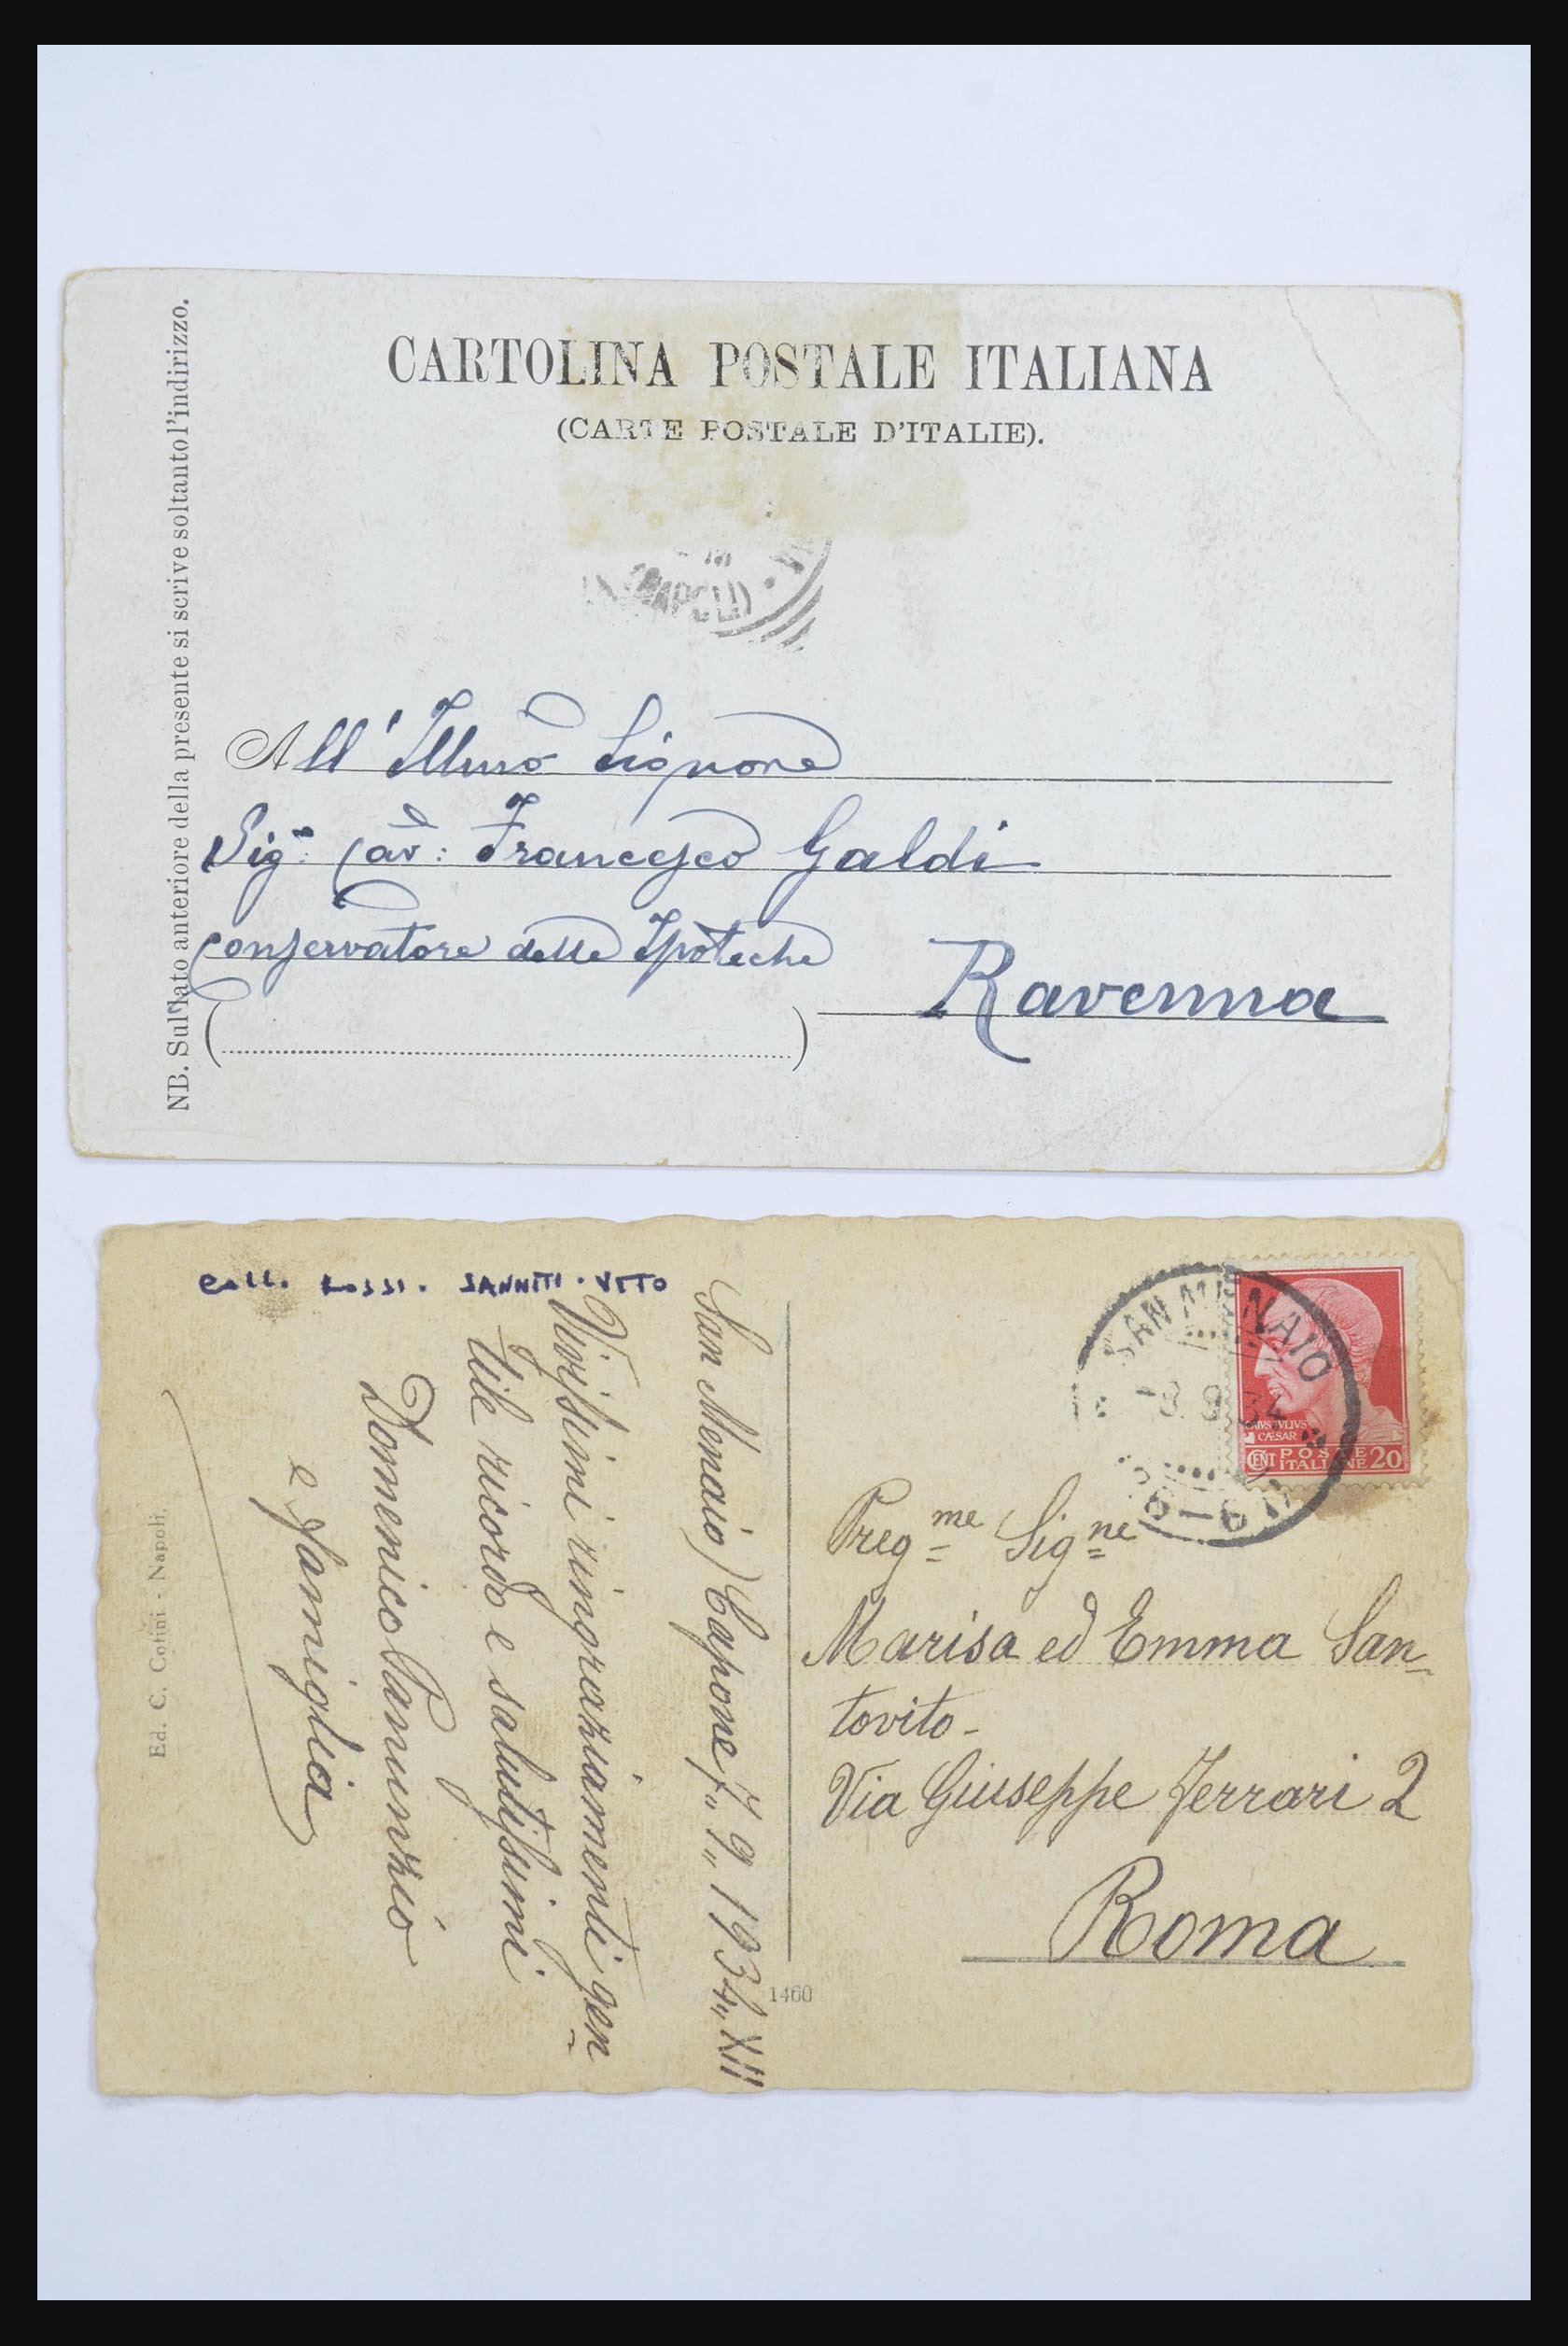 CARTOLINA POSTALE ITALIANA
(CARTE POSTALE D'ITALIE).
NB. Sul lato anteriore della presente si scrive soltanto l'indirizzo.
(NAPOLI)
All' Illmo Signore
Sigr Cav: Francesco Galdi
Conservatore delle Ipoteche
Ravenna
Coll. Rossi. SANNITI. VITO
San Menaio (Capone), 7, 9, 1934, XII
Vivissimi ringraziamenti gen
tile ricordo e salutissimi
Domenico Panunzio
e famiglia
Ed. C. Cotini - Napoli.
1460
SAN MENAIO
-8.9.34
CAIVS IVLIVS
CÆSAR
CENT POSTE
ITALIANE 20
Preg.me Sig.ne
Marisa ed Emma San-
tovito-
Via Giuseppe Ferrari 2
Roma